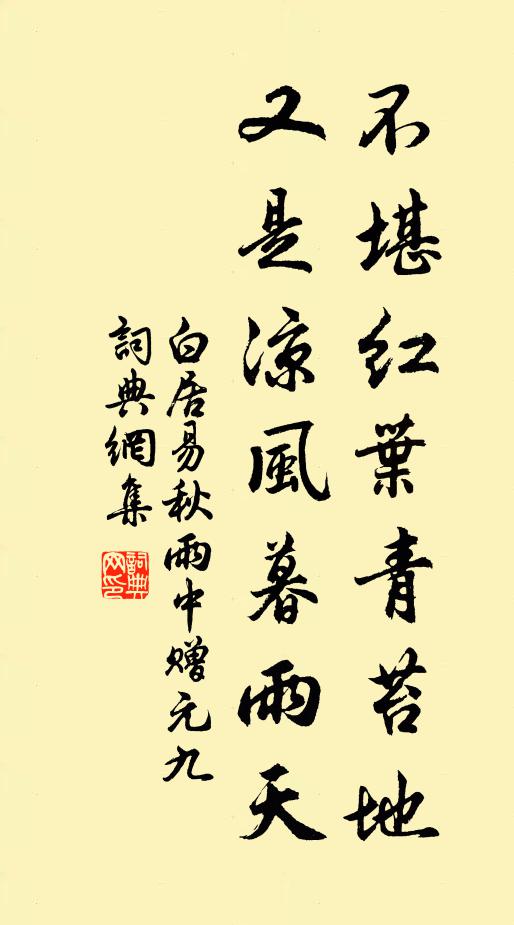 不堪紅葉青苔地
又是涼風暮雨天
白居易秋雨中赠元九
詞典網集
詞典网印